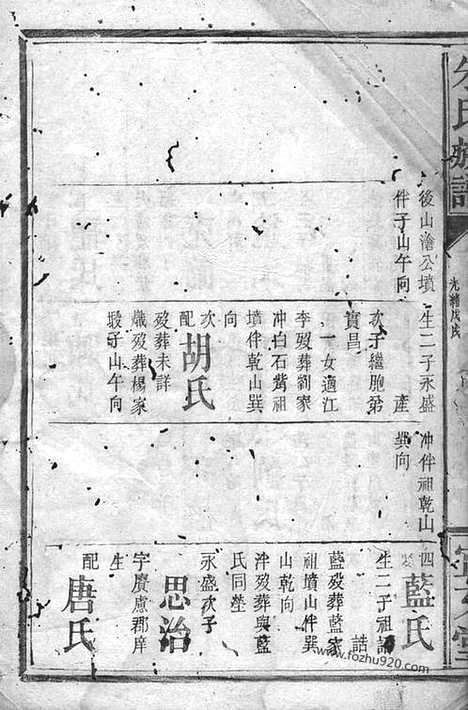 朱氏族譜
光緒戊戌
後山澮公墳
伴子山午向
生二子永盛
產
次子繼胞弟
實昌
一女適江
李歿葬劉家
冲白石觜祖
墳伴乾山巽
向
次
配胡氏
歿葬未詳
熾歿葬楊家
塅子山午向
冲伴祖乾山
巽向
四
娶藍氏
生二子祖語
誥
藍歿葬藍家
祖墳山伴巽
山乾向
冲歿葬與藍
氏同塋
永盛次子
思治
字賡慮郡庠
生
配唐氏
www.fozhu920.com